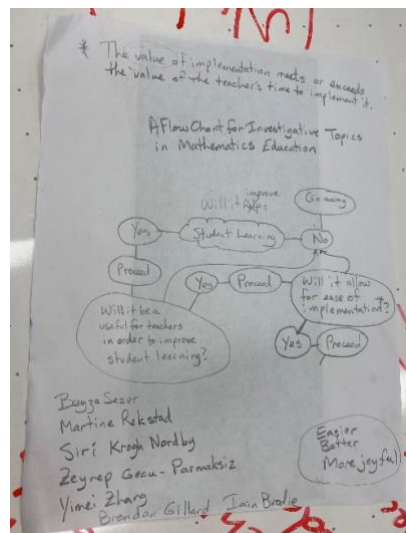 * The value of implementation meets or exceeds
the value of the teacher's time to implement it.
A Flow Chart for Investigative Topics
in Mathematics Education
improve
Will it
Go away
Yes
Student Learning
No
Proceed
Yes
Proceed
Will it allow
for ease of
implementation*?
Will it be a
useful for teachers
in order to improve
student learning?
Yes
Proceed
Martine Rekstad
Siri Krogh Nordby
Zeynep Gecu-Parmaksiz
Yimei Zhang
Brendan Gillard Iain Brodie
Easier
Better
More joyful